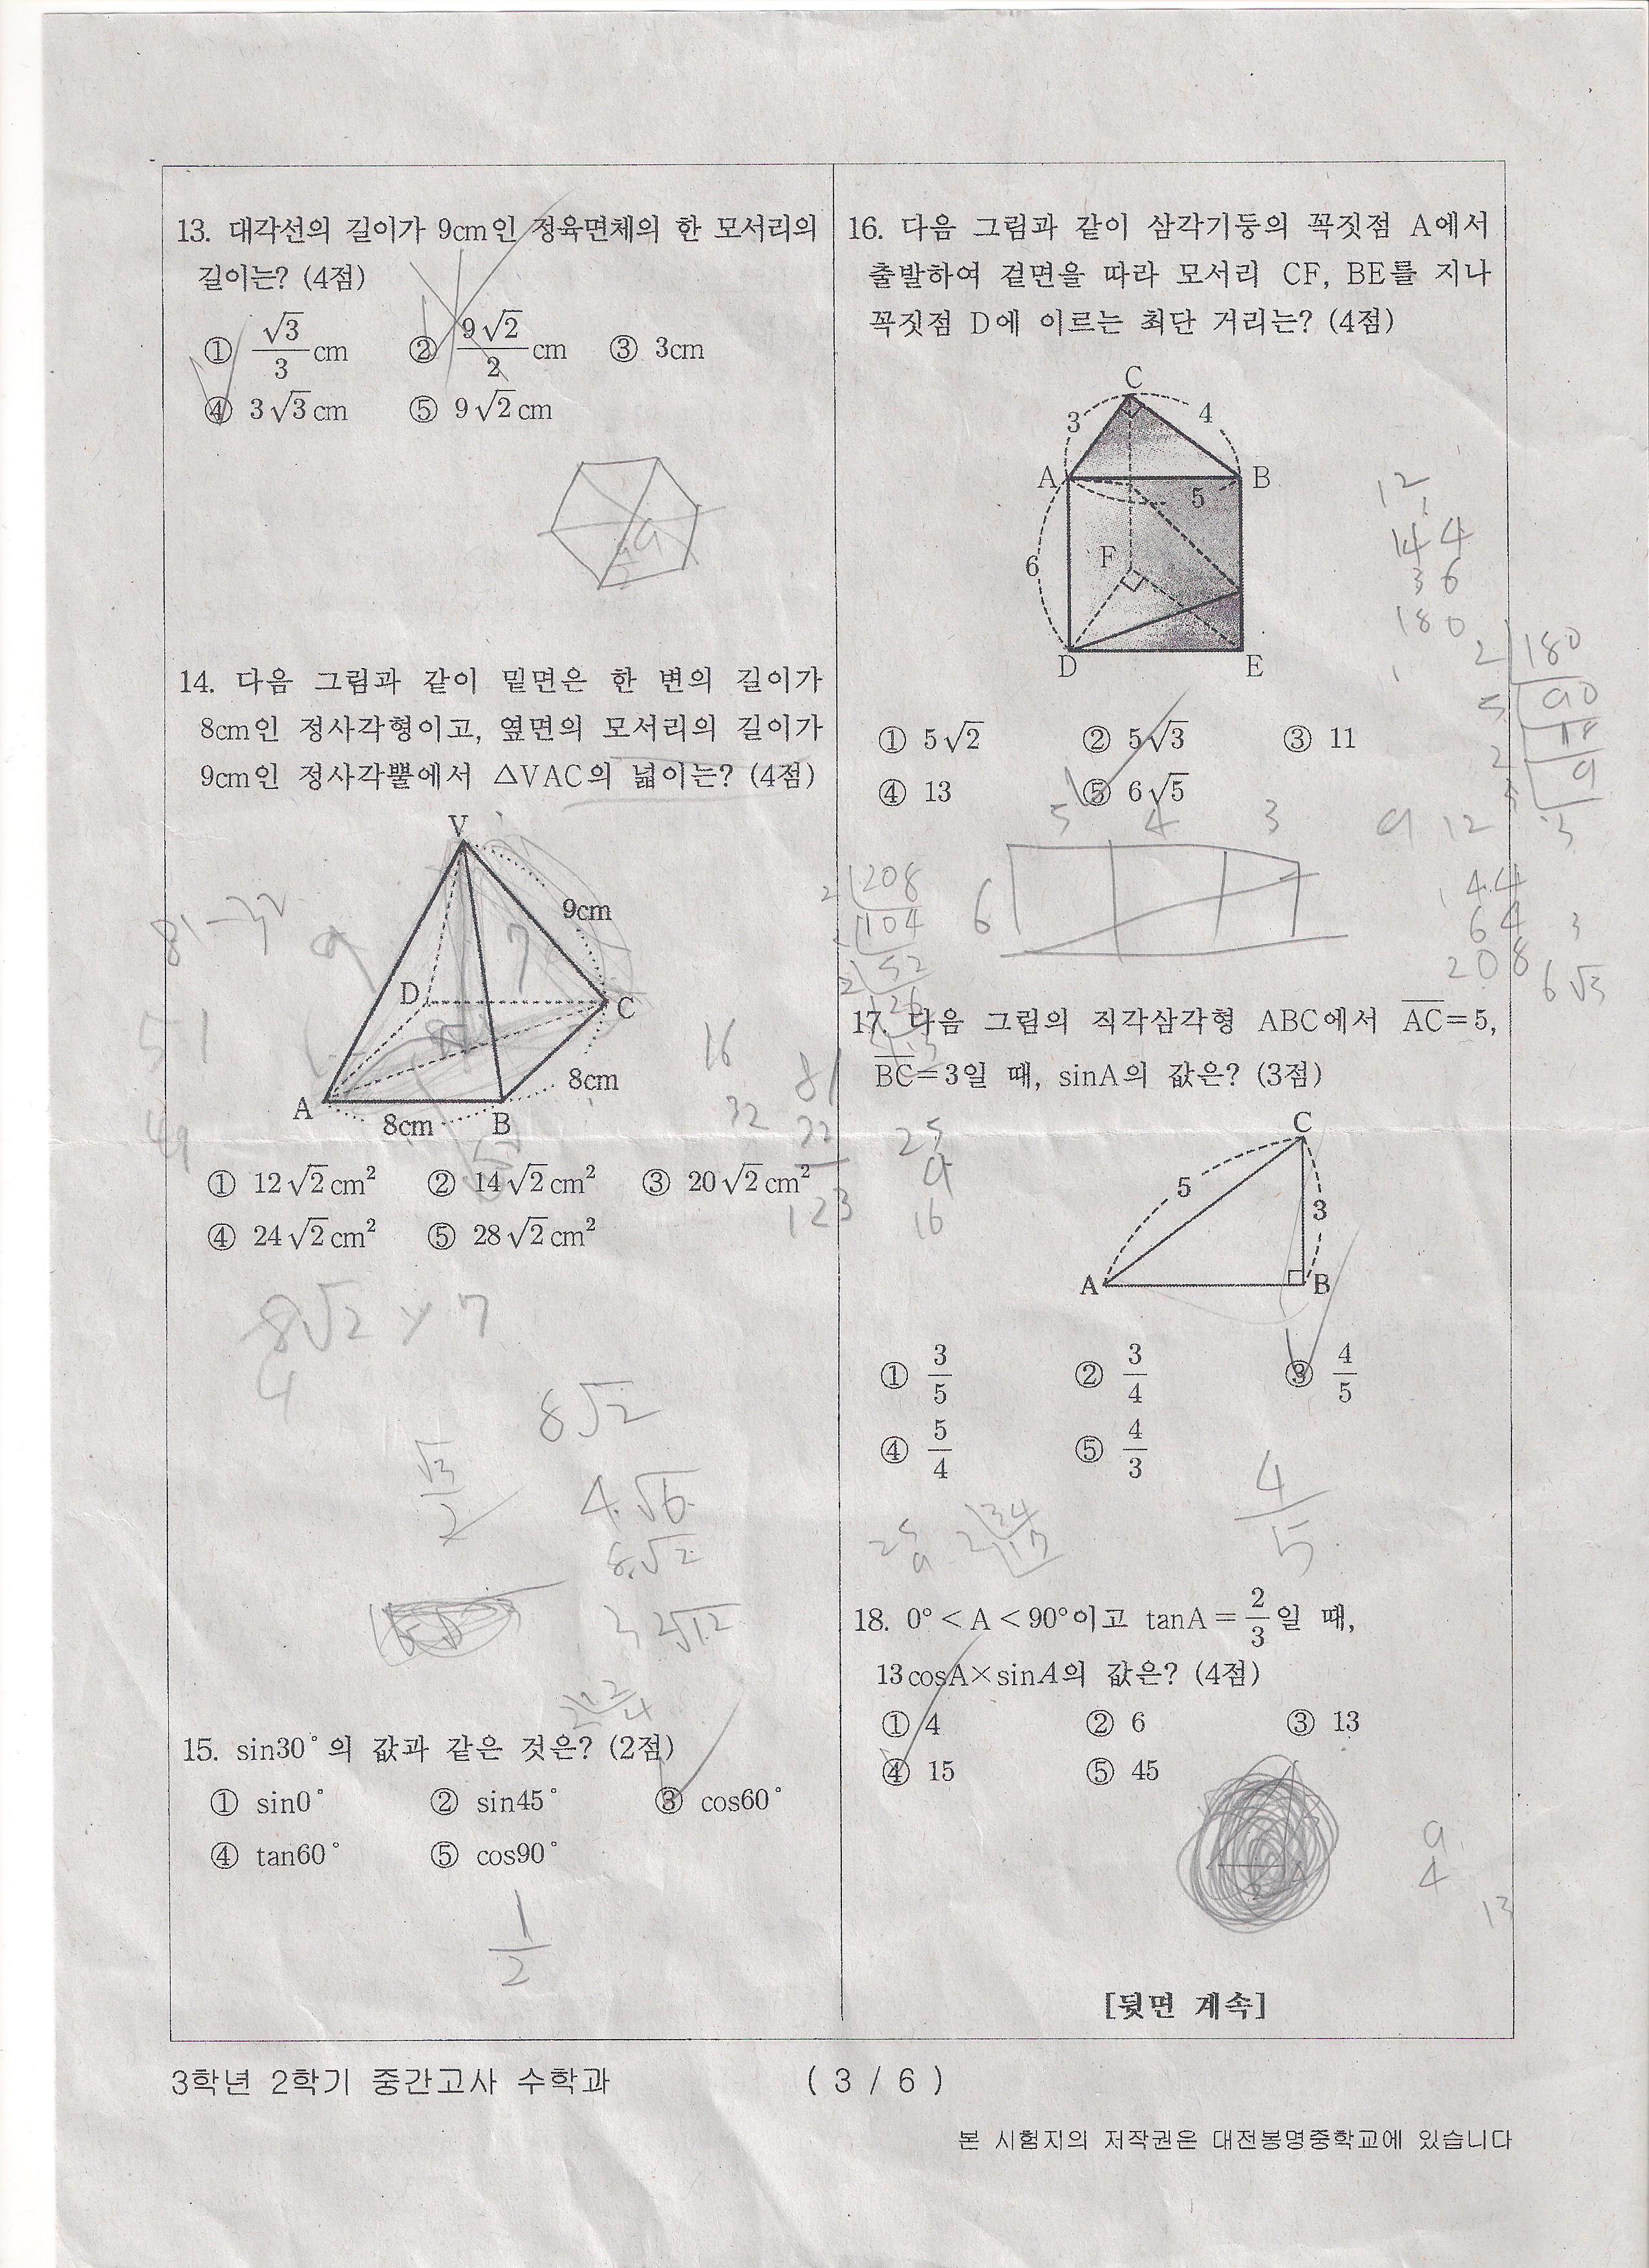 13. 대각선의 길이가 9cm인 정육면체의 한 모서리의
길이는? (4점)
① √3/3 cm ② 9√2/2 cm ③ 3cm
④ 3√3cm ⑤ 9√2cm
14. 다음 그림과 같이 밑면은 한 변의 길이가
8cm인 정사각형이고, 옆면의 모서리의 길이가
9cm인 정사각뿔에서 △VAC의 넓이는? (4점)
V
9cm
81-32
9
7
D
C
51
16
81
8cm
A
32
32
49
8cm
B
① 12√2cm² ② 14√2cm² ③ 20√2cm²
123
④ 24√2cm² ⑤ 28√2cm²
8√2 × 7
4
8√2
√3/2
4√6
8√2
32√12
15. sin30°의 값과 같은 것은? (2점)
① sin0° ② sin45° ③ cos60°
④ tan60° ⑤ cos90°
1/2
16. 다음 그림과 같이 삼각기둥의 꼭짓점 A에서
출발하여 겉면을 따라 모서리 CF, BE를 지나
꼭짓점 D에 이르는 최단 거리는? (4점)
C
3
4
A
B
5
12
144
36
180
6
F
D
E
2 180
5 90
2
9
3
① 5√2 ② 5√3 ③ 11
④ 13 ⑤ 6√5
5 4 3
9 12
6
2 208
104
2 52
26
144
64
208
6√3
17. 다음 그림의 직각삼각형 ABC에서 AC=5,
BC=3일 때, sinA의 값은? (3점)
25
9
16
C
5
3
A
B
① 3/5 ② 3/4 ③ 4/5
④ 5/4 ⑤ 4/3
4/5
25
9
2 34
17
18. 0°<A<90°이고 tanA=2/3일 때,
13cosA×sinA의 값은? (4점)
① 4 ② 6 ③ 13
④ 15 ⑤ 45
9
4
13
[뒷면 계속]
3학년 2학기 중간고사 수학과 ( 3 / 6 )
본 시험지의 저작권은 대전봉명중학교에 있습니다